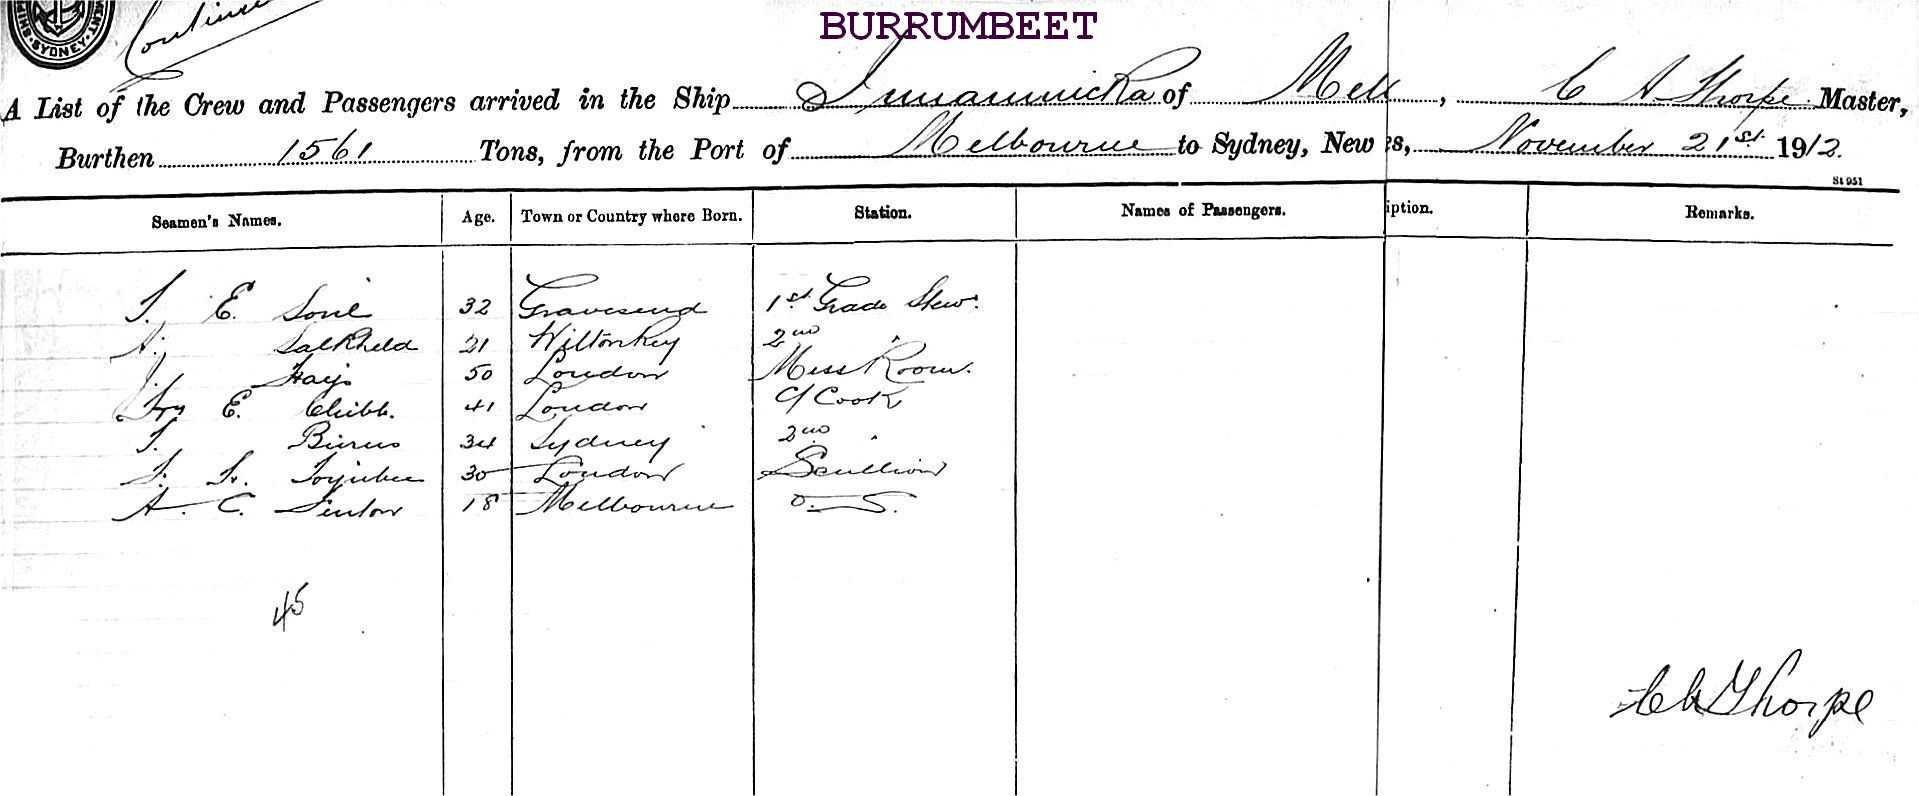 SYDNEY
BURRUMBEET
A List of the Crew and Passengers arrived in the Ship Innamincka of Melb, C A Thorpe Master,
Burthen 1561 Tons, from the Port of Melbourne to Sydney, New es, November 21st 1912.
St 951
Seamen's Names. Age. Town or Country where Born. Station. Names of Passengers. iption. Remarks.
E. 32 Gravesend 1st Grade Stew.
A. Salkheld 21 2nd "
J. Hays 50 London Mess Room.
E. Chibb. 41 London C/ Cook
T. Burns 34 Sydney 2nd "
30 London Scullion
A. C. 18 Melbourne O. S.
45
C A Thorpe